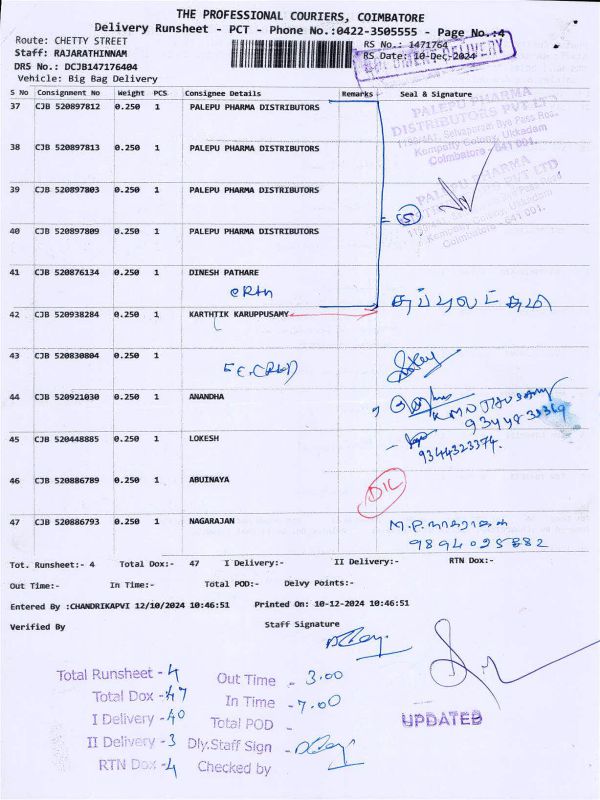 THE PROFESSIONAL COURIERS, COIMBATORE
Delivery Runsheet - PCT - Phone No.:0422-3505555 - Page No.:4
Route: CHETTY STREET
Staff: RAJARATHINNAM
DRS No.: DCJB147176404
Vehicle: Big Bag Delivery
RS No.: 1471764
RS Date: 10-Dec-2024
DOCUMENT DELIVERY
S No Consignment No Weight PCS Consignee Details Remarks Seal & Signature
37 CJB 520897812 0.250 1 PALEPU PHARMA DISTRIBUTORS
38 CJB 520897813 0.250 1 PALEPU PHARMA DISTRIBUTORS
39 CJB 520897803 0.250 1 PALEPU PHARMA DISTRIBUTORS
40 CJB 520897809 0.250 1 PALEPU PHARMA DISTRIBUTORS
PALEPU PHARMA
DISTRIBUTORS PVT LTD
Selvapuram Bye Pass Road,
Kempatty Colony, Ukkadam
Coimbatore - 641 001.
PALEPU PHARMA
Coimbatore - 641 001.
= 5
41 CJB 520876134 0.250 1 DINESH PATHARE
42 CJB 520938284 0.250 1 KARTHTIK KARUPPUSAMY
43 CJB 520830804 0.250 1
44 CJB 520921030 0.250 1 ANANDHA
9344832369
45 CJB 520448885 0.250 1 LOKESH
9344323374.
46 CJB 520886789 0.250 1 ABUINAYA
D/L
47 CJB 520886793 0.250 1 NAGARAJAN
M.P.
Tot. Runsheet:- 4 Total Dox:- 47 I Delivery:- II Delivery:- RTN Dox:-
Out Time:- In Time:- Total POD:- Delvy Points:-
Entered By :CHANDRIKAPVI 12/10/2024 10:46:51 Printed On: 10-12-2024 10:46:51
Verified By Staff Signature
Total Runsheet - 4 Out Time - 3.00
Total Dox - 47 In Time - 7.00
I Delivery - 40 Total POD -
II Delivery - 3 Dly.Staff Sign -
RTN Dox - 4 Checked by
UPDATED